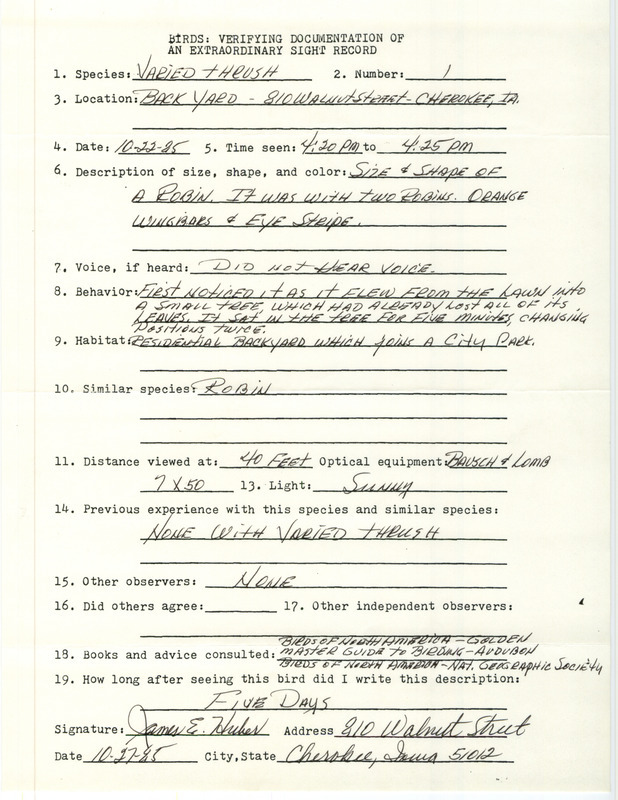 BIRDS: VERIFYING DOCUMENTATION OF
AN EXTRAORDINARY SIGHT RECORD
1. Species: VARIED THRUSH 2. Number: 1
3. Location: BACK YARD - 810 WALNUT STREET - CHEROKEE, IA.
4. Date: 10-22-85 5. Time seen: 4:20 PM to 4:25 PM
6. Description of size, shape, and color: SIZE & SHAPE OF
A ROBIN. IT WAS WITH TWO ROBINS. ORANGE
WINGBARS & EYE STRIPE.
7. Voice, if heard: DID NOT HEAR VOICE.
8. Behavior: FIRST NOTICED IT AS IT FLEW FROM THE LAWN INTO
A SMALL TREE, WHICH HAD ALREADY LOST ALL OF ITS
LEAVES. IT SAT IN THE TREE FOR FIVE MINUTES, CHANGING
POSITIONS TWICE.
9. Habitat: RESIDENTIAL BACKYARD WHICH JOINS A CITY PARK.
10. Similar species: ROBIN
11. Distance viewed at: 40 FEET Optical equipment: BAUSCH & LOMB
7 X 50 13. Light: SUNNY
14. Previous experience with this species and similar species:
NONE WITH VARIED THRUSH
15. Other observers: NONE
16. Did others agree: 17. Other independent observers:
BIRDS OF NORTH AMERICA - GOLDEN
18. Books and advice consulted: MASTER GUIDE TO BIRDING - AUDUBON
BIRDS OF NORTH AMERICA - NAT. GEOGRAPHIC SOCIETY
19. How long after seeing this bird did I write this description:
FIVE DAYS
Signature: James E. Huber Address 810 Walnut Street
Date 10-27-85 City, State Cherokee, Iowa 51012